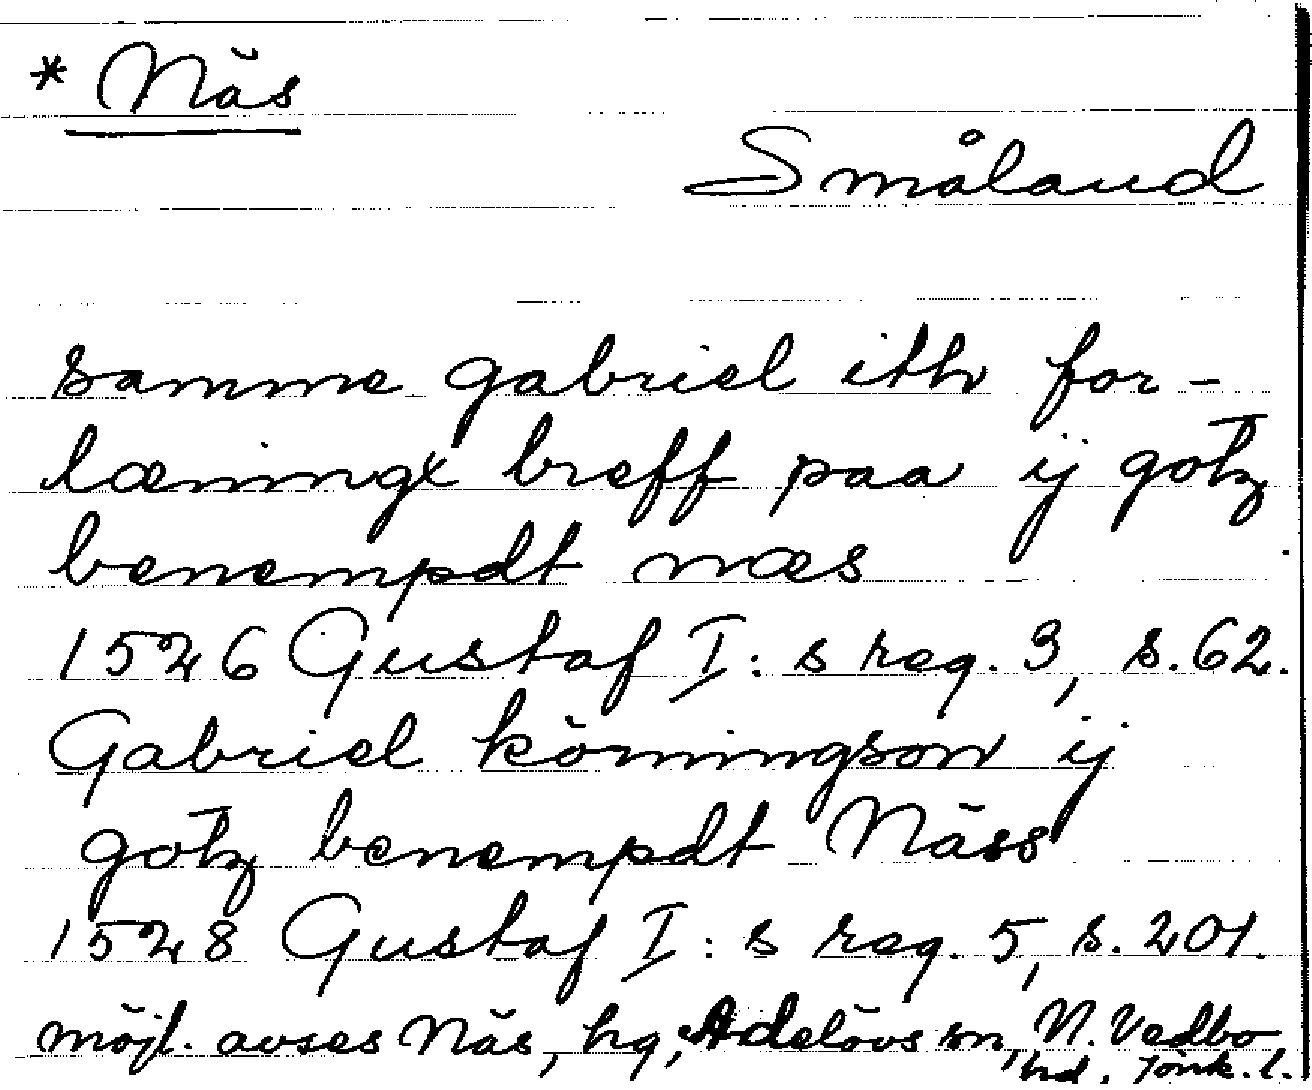 * Näs
Småland
samme gabriel ith for-
læningx breff paa ij gotz
benempdt næs
1526 Gustaf I:s reg. 3, s. 62.
Gabriel köningson ij
gotz benempdt Näss
1528 Gustaf I:s reg. 5, s. 201.
möjl. avses Näs, hg, Adelövs sn, N. Vedbo
hd, Jönk. l.